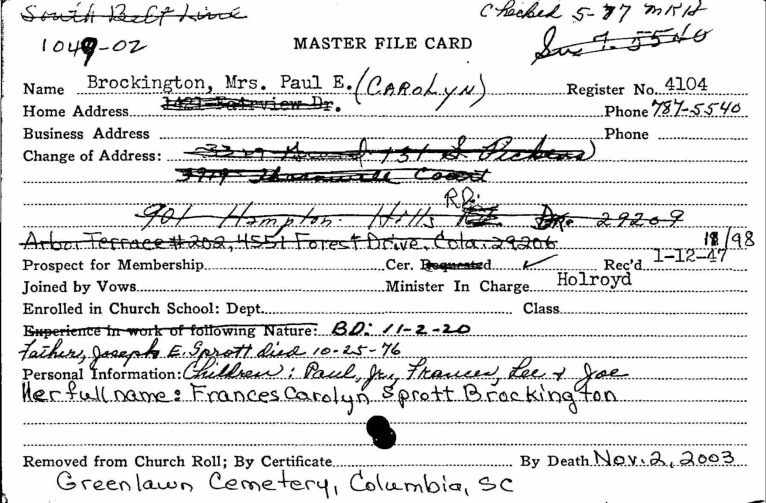 South Belt Line Checked 5-77 MRH
1049-02 MASTER FILE CARD Sus 7.5540
Name Brockington, Mrs. Paul E. (CAROLYN) Register No. 4104
Home Address 1421 Fairview Dr. Phone 787-5540
Business Address Phone
Change of Address: 131 S. Pickens
Court
RD.
901 Hampton Hills Dr. 29209
Arbor Terrace #202, 4551 Forest Drive, Cola. 29206 /98
Prospect for Membership Cer. Requested ✓ Rec'd 1-12-47
Joined by Vows Minister In Charge Holroyd
Enrolled in Church School: Dept. Class
Experience in work of following Nature: BD: 11-2-20
Father, Joseph E. Sprott died 10-25-76
Personal Information: Children: Paul, Jr., Frances, Lee & Joe
Her full name: Frances Carolyn Sprott Brockington
Removed from Church Roll; By Certificate By Death Nov. 2, 2003
Greenlawn Cemetery, Columbia, SC